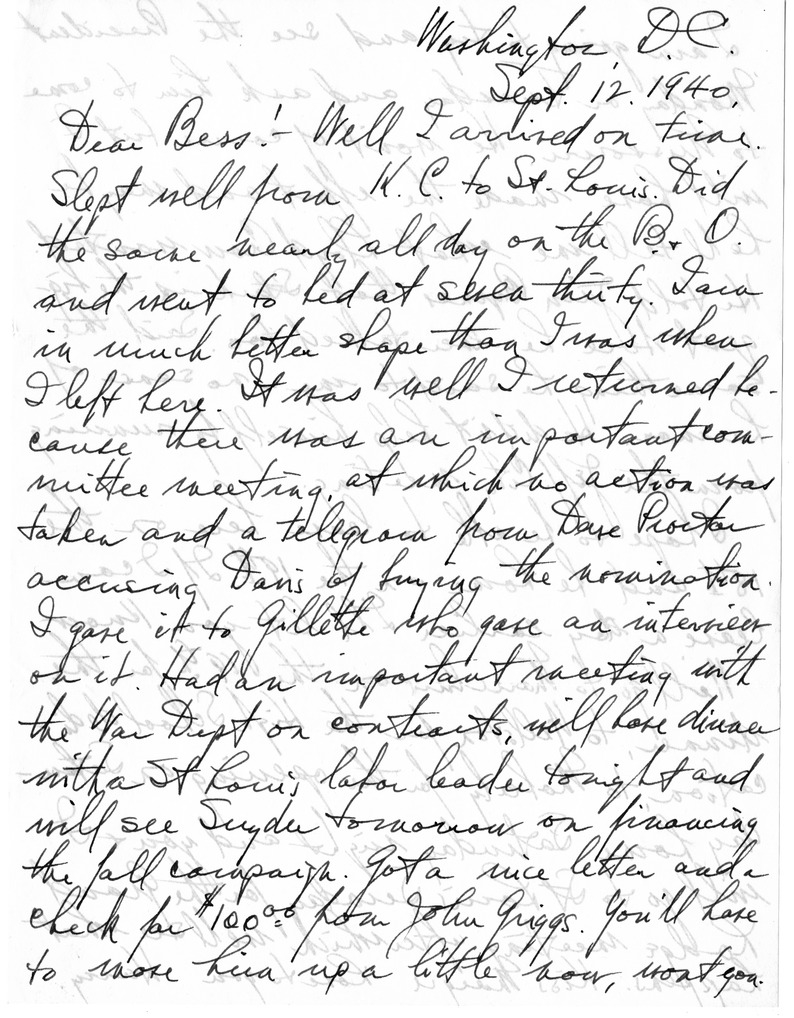 Washington, D.C.
Sept. 12. 1940.
Dear Bess:- Well I arrived on time.
Slept well from K. C. to St. Louis. Did
the same nearly all day on the B. & O.
and went to bed at seven thirty. I am
in much better shape than I was when
I left here. It was well I returned be-
cause there was an important com-
mittee meeting, at which no action was
taken and a telegram from Dave Proctor
accusing Davis of buying the nomination.
I gave it to Gillette who gave an interview
on it. Had an important meeting with
the War Dept on contracts, will have dinner
with a St Louis labor leader tonight and
will see Snyder tomorrow on financing
the fall campaign. Got a nice letter and a
check for $100.00 from John Griggs. You'll have
to move him up a little now, wont you.